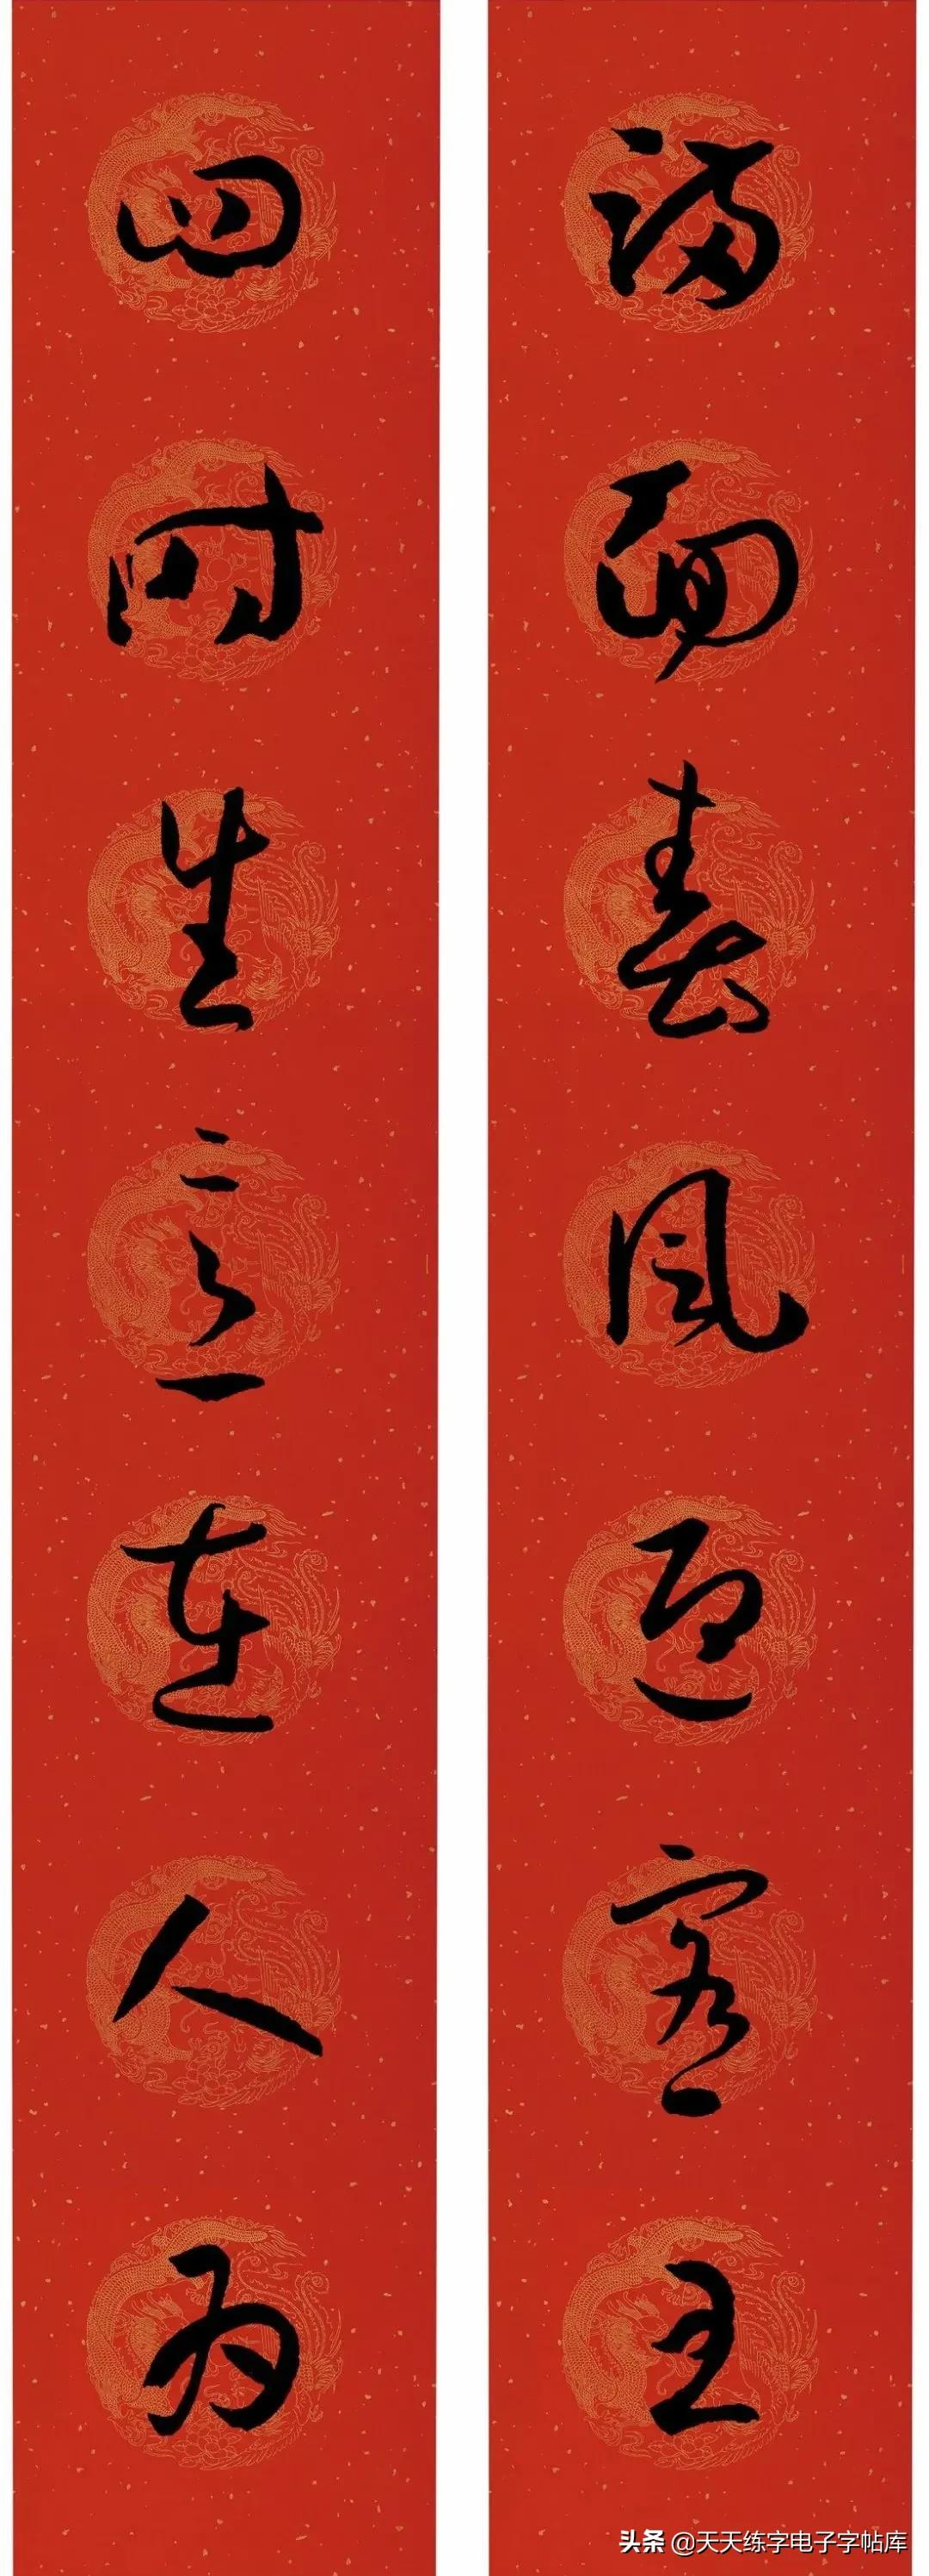 满面春风迎客至
四时生意在人为
头条 @天天练字电子字帖库